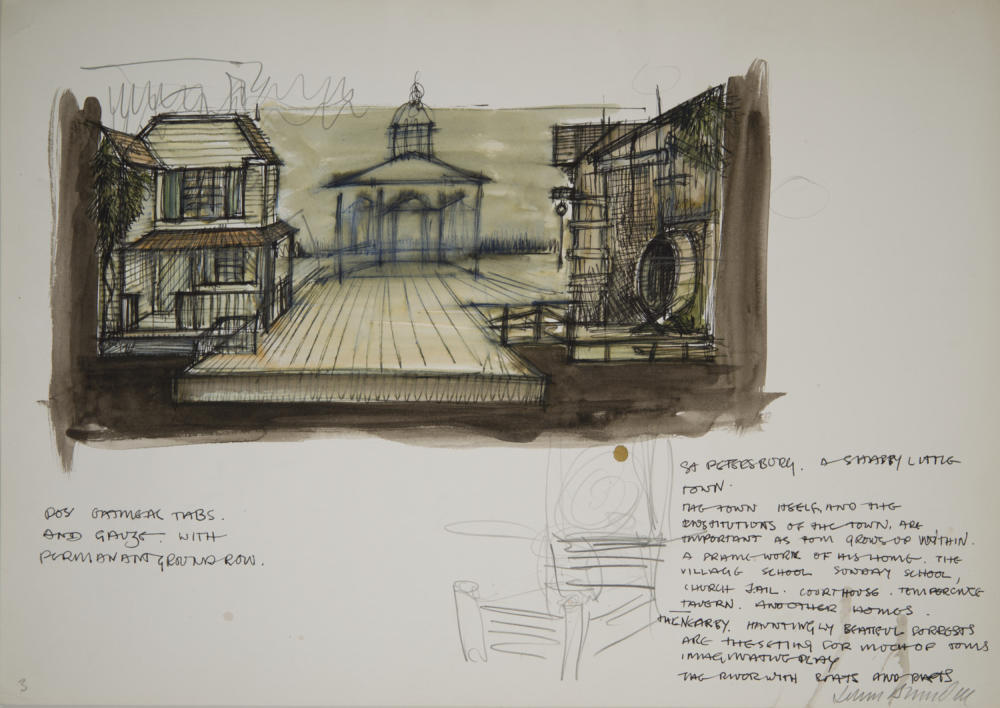 OATMEAL TABS.
AND GAUZE. WITH
PERMANANT GROUNDROW.
St PETERSBURG. A SHABBY LITTLE
TOWN.
THE TOWN ITSELF, AND THE
INSTITUTIONS OF THE TOWN. ARE
IMPORTANT AS TOM GROWS UP WITHIN.
A FRAME WORK OF HIS HOME. THE
VILLAGE SCHOOL SUNDAY SCHOOL,
CHURCH JAIL. COURTHOUSE. TEMPERENCE
TAVERN. AND OTHER HOMES.
THE NEARBY. HAUNTINGLY BEATIFUL FORRESTS
ARE THE SETTING FOR MUCH OF TOMS
IMAGINATIVE PLAY
THE RIVER WITH BOATS AND RAFTS
3